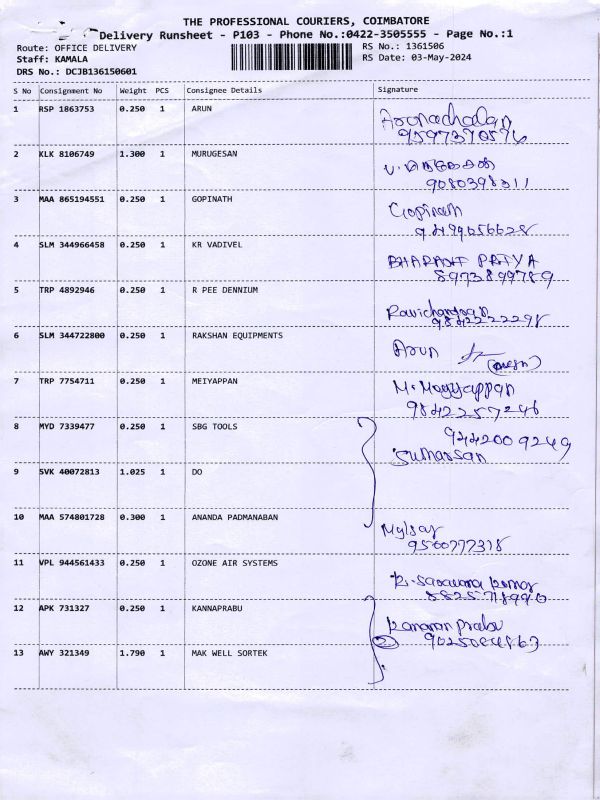 THE PROFESSIONAL COURIERS, COIMBATORE
Delivery Runsheet - P103 - Phone No.:0422-3505555 - Page No.:1
Route: OFFICE DELIVERY RS No.: 1361506
Staff: KAMALA RS Date: 03-May-2024
DRS No.: DCJB136150601
S No Consignment No Weight PCS Consignee Details Signature
1 RSP 1863753 0.250 1 ARUN
Arunachalam
2 KLK 8106749 1.300 1 MURUGESAN
3 MAA 865194551 0.250 1 GOPINATH
Gopinath
4 SLM 344966458 0.250 1 KR VADIVEL
BHARATH PRIYA
8973899789
5 TRP 4892946 0.250 1 R PEE DENNIUM
Ravichandran
9842222298
6 SLM 344722800 0.250 1 RAKSHAN EQUIPMENTS
Arun
7 TRP 7754711 0.250 1 MEIYAPPAN
M. Meyyappan
9842257246
8 MYD 7339477 0.250 1 SBG TOOLS
9442009249
9 SVK 40072813 1.025 1 DO
10 MAA 574801728 0.300 1 ANANDA PADMANABAN
9500777318
11 VPL 944561433 0.250 1 OZONE AIR SYSTEMS
R. Saravana Kumar
12 APK 731327 0.250 1 KANNAPRABU
2
13 AWY 321349 1.790 1 MAK WELL SORTEK